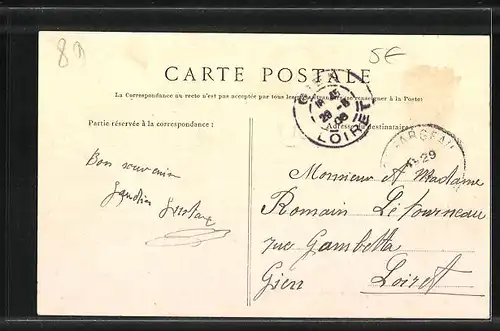 5E
CARTE POSTALE
La Correspondance au recto n'est pas acceptée par tous les renseigner à la Poste
Partie réservée à la correspondance :
Adresse du destinataire
GIEN
28 -5
08
LOIRET
29
Bon souvenir
Monsieur et Madame
Romain Létourneau
rue Gambetta
Gien Loiret